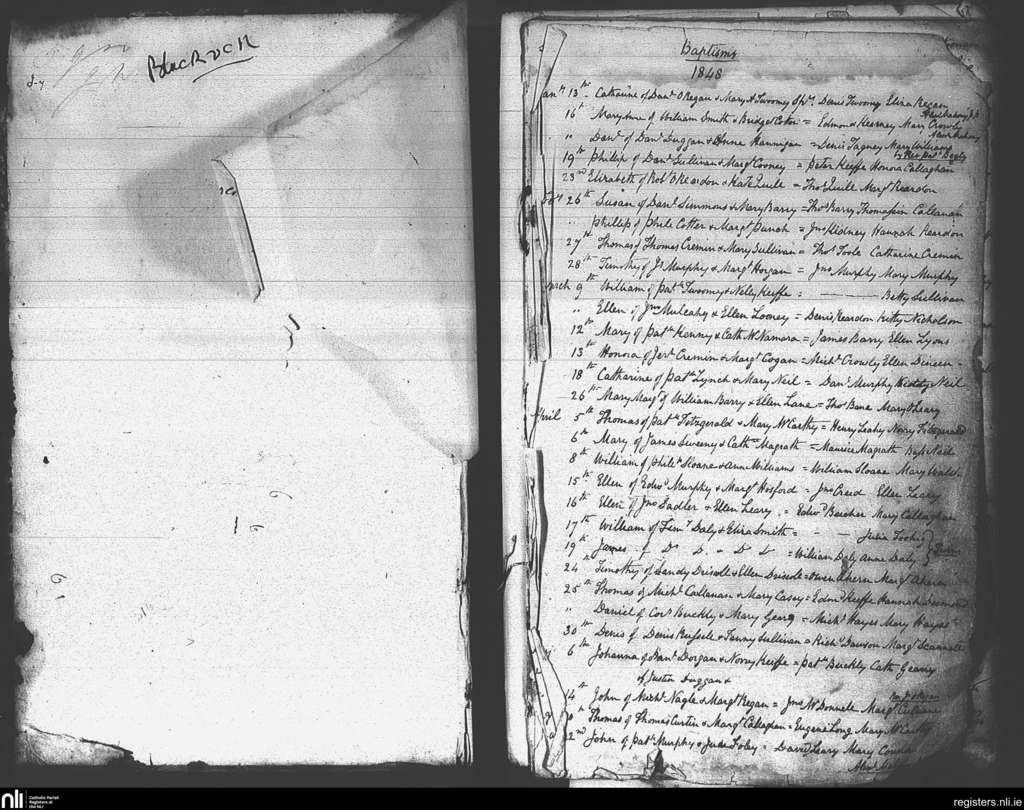 Blackrock
Baptisms
1848
Jany 13th Catharine of Danl O Regan & Mary A Twomey Spr. Denis Twomey Eliza Regan
16th Mary Anne of William Smith & Bridget = Edmond Kearney Mary Crowly
" Danl of Danl Duggan & Anne Hannigan = Denis Tagney Mary Williams
by Rev Pat Begly
19th Philip of Danl Sullivan & Margt Cooney = Peter Keeffe Honora Callaghan
23rd Elizabeth of Robt O Reardon & Kate Quill = Thos Quill Margt Reardon
26th Susan of Danl Simmons & Mary Barry = Thos Barry Thomasin Callanan
" Phillip of Phill Cotter & Margt = Jno Kidney Hannah Reardon
27th Thomas of Thomas Cremin & Mary Sullivan = Thos Toole Catharine Cremin
28th Timothy of Js Murphy & Margt Horgan = Jno Murphy Mary Murphy
March 9th William of Patk Twomey & Nelly Keeffe = Betty Sullivan
" Ellen of Jno Mulcahy & Ellen Looney = Denis Reardon Kitty Nicholson
12th Mary of Patk Kenny & Cath McNamara = James Barry Ellen Lyons
13th Honora of Jerh Cremin & Margt Cogan = Michl Crowly Ellen Dineen
18th Catharine of Patk Lynch & Mary Neil = Danl Murphy Neil
26th Mary Margt of William Barry & Ellen Lane = Thos Bane Mary O Leary
April 5th Thomas of Patk Fitzgerald & Mary McCarthy = Henry Leahy Norry Fitzgerald
6th Mary of James Sweeny & Cathn Magrath = Maurice Magrath
8th William of Philip Sloane & Ann Williams = William Sloane Mary Walsh
15th Ellen of Edwd Murphy & Margt Hosford = Jno Creed Ellen Leary
16th Ellen of Jno Sadler & Ellen Leary = Edwd Beecher Mary Callaghan
17th William of Timy Daly & Eliza Smith = Julia
19th James of Do Do & Do Do = William Daly Anne Daly
24th Timothy of Sandy Driscole & Ellen Driscole = Owen Ahern Margt Ahern
25th Thomas of Michl Callanan & Mary Casey = Edmd Keeffe Hannah Desmond
" Daniel of Cors Buckly & Mary Geary = Michl Hayes Mary Hayes
30th Denis of Denis Russele & Fanny Sullivan = Richd Dawson Margt Scannell
6th Johanna of Danl Dorgan & Norry Keeffe = Patk Buckly Cath Geary
of Justin Duggan &
14th John of Michl Nagle & Margt Regan = Jno McDonnell Margt
Thomas of Thomas Curtin & Margt Callaghan = Eugene Long Mary McCarthy
2nd John of Patk Murphy & Jude Foley = David Leary Mary
nli Catholic Parish
Registers at
the NLI
registers.nli.ie